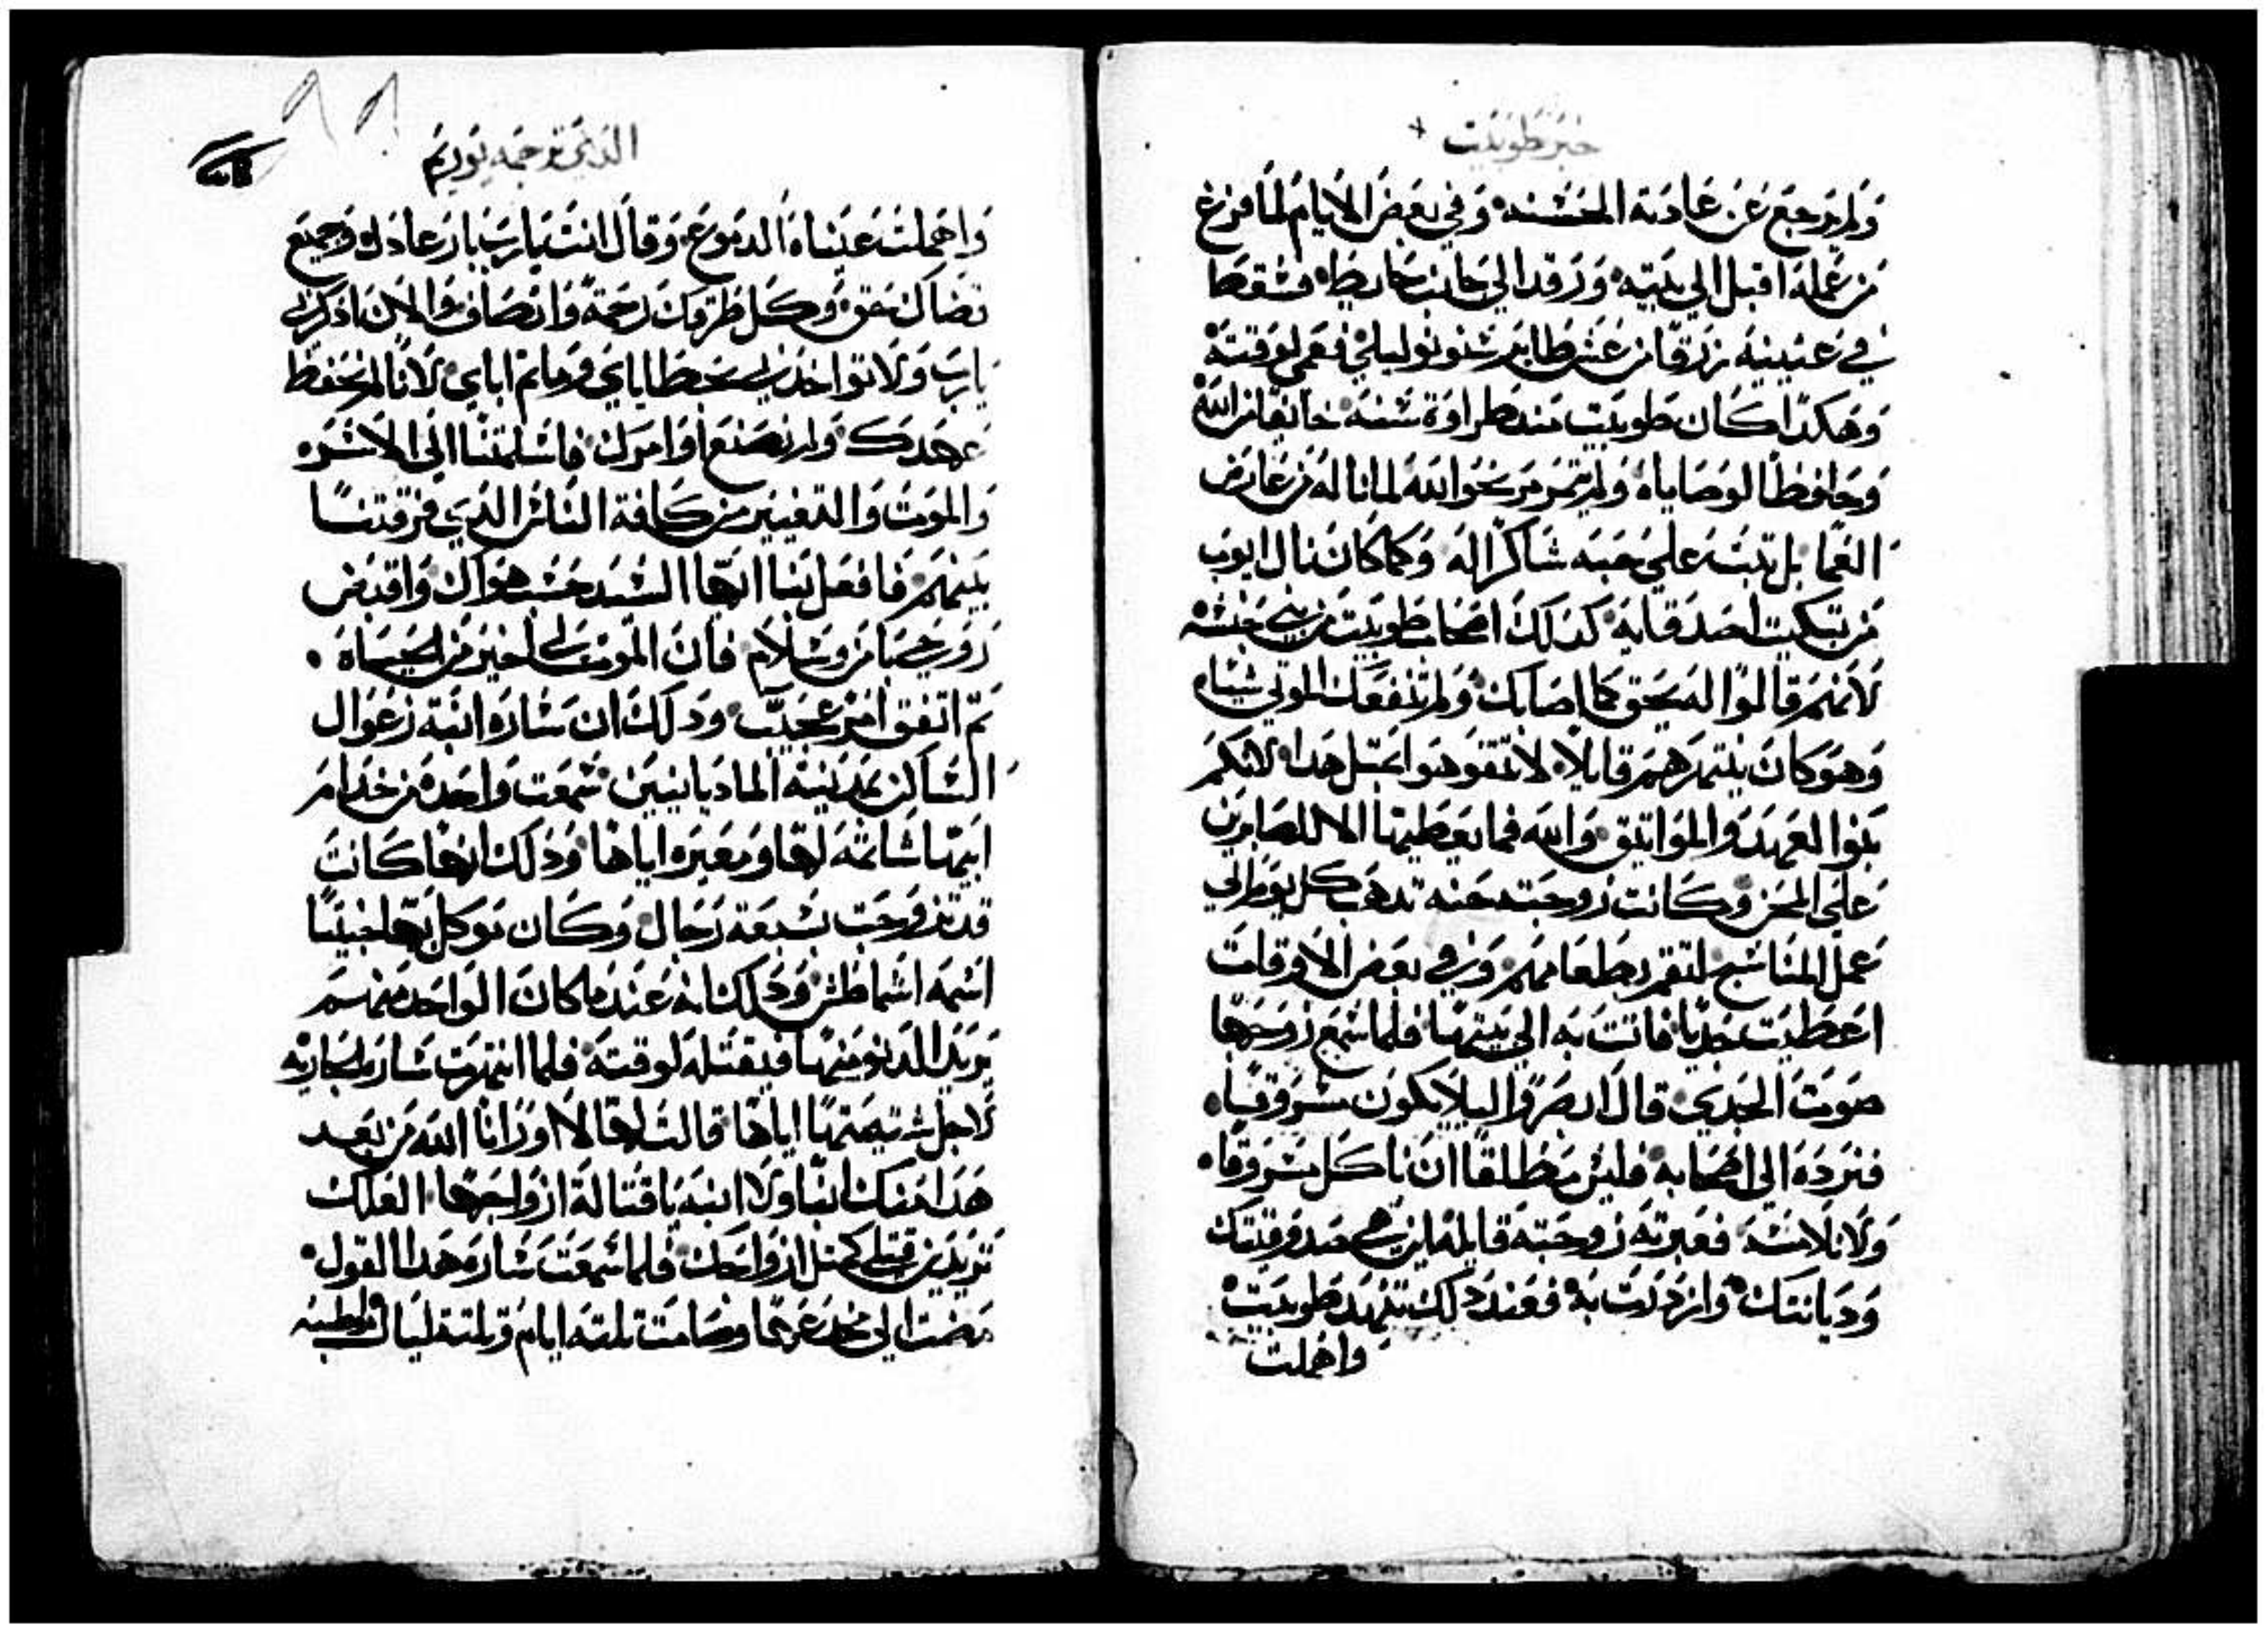 خبر طوبيت +
ولم يرجع عن عادته الحسنه وفي بعض الايام لما فرغ
من عمله اقبل الي بيته ورقد الي جانب حايط فسقط
في عينيه زرقا من عش طاير سنونو ليلي فعمي لوقته
وهكدا كان طوبيت مند طراوة سنه خايفا من الله
وحافظا لوصاياه ولم يتمرمر نحو الله لما ناله من عارض
العما بل تبت علي حبه شاكرا له وكما كان نال ايوب
من تبكيت اصدقايه كدلك اصحاب طوبيت من بني جنسه
لانهم قالوا له بحق كما اصابك ولم تنفعك الموتي شيا
وهو كان ينتهرهم قايلا لا تتفوهوا بمتل هدا لانكم
بنوا العهد والمواتيق والله فما يعطيها الا للصابرين
علي المحن وكانت زوجته حنه تدهب كل يوم الي
عمل المناسج لتقم بطعامهم وفي بعض الاوقات
اعطيت جديا فاتت به الي بيتها فلما سمع زوجها
صوت الجدي قال انصروا ليلا يكون سروقا
فنرده الي اصحابه فليس مطلقا ان ناكل سروقا
ولا نلامسه فعيرته زوجته قايله اين هي صدوقيتك
وديانتك وازدرت به فعند دلك تنهد طوبيت
واهملت
الدي ترجمه يوريم
واهملت عيناه الدموع وقال انت يارب بار عادل وجميع
قضاك حق وكل طرقك رحمة وانصاف والان ادكرني
يارب ولا تواخدني بخطاياي وماتم اباي لانا لم نحفظ
عهدك ولم نصنع اوامرك فاسلمتنا الي الاسر
والموت والتعيير من كافة الناس الدي فرقتنا
بينهم فافعل بنا ايها السيد حسب هواك واقبض
روحي بامن وسلام فان الموت لي اخير من الحياه
تم اتفق امر عجيب ودلك ان ساره ابنة رعوال
الساكن بمدينة الماديانيين سمعت واحده من خدام
ابيها شاتمه لها ومعيره اياها ودلك انها كانت
قد تزوجت بسبعة رجال وكان موكل بها جنيا
اسمه اشماطس ودلك انه عند ما كان الواحد منهم
يريد الدنو منها فيقتله لوقته فلما انتهرت ساره الجاريه
لاجل شتيمتها اياها قالت لها لا اورانا الله من بعد
هدا منك ابنا ولا ابنه يا قتالة ازواجها العلك
تريدين قتلي كمتل ازواجك فلما سمعت ساره هدا القول
مضت الي مخدع بيتها وصامت تلتة ايام وتلتة ليال